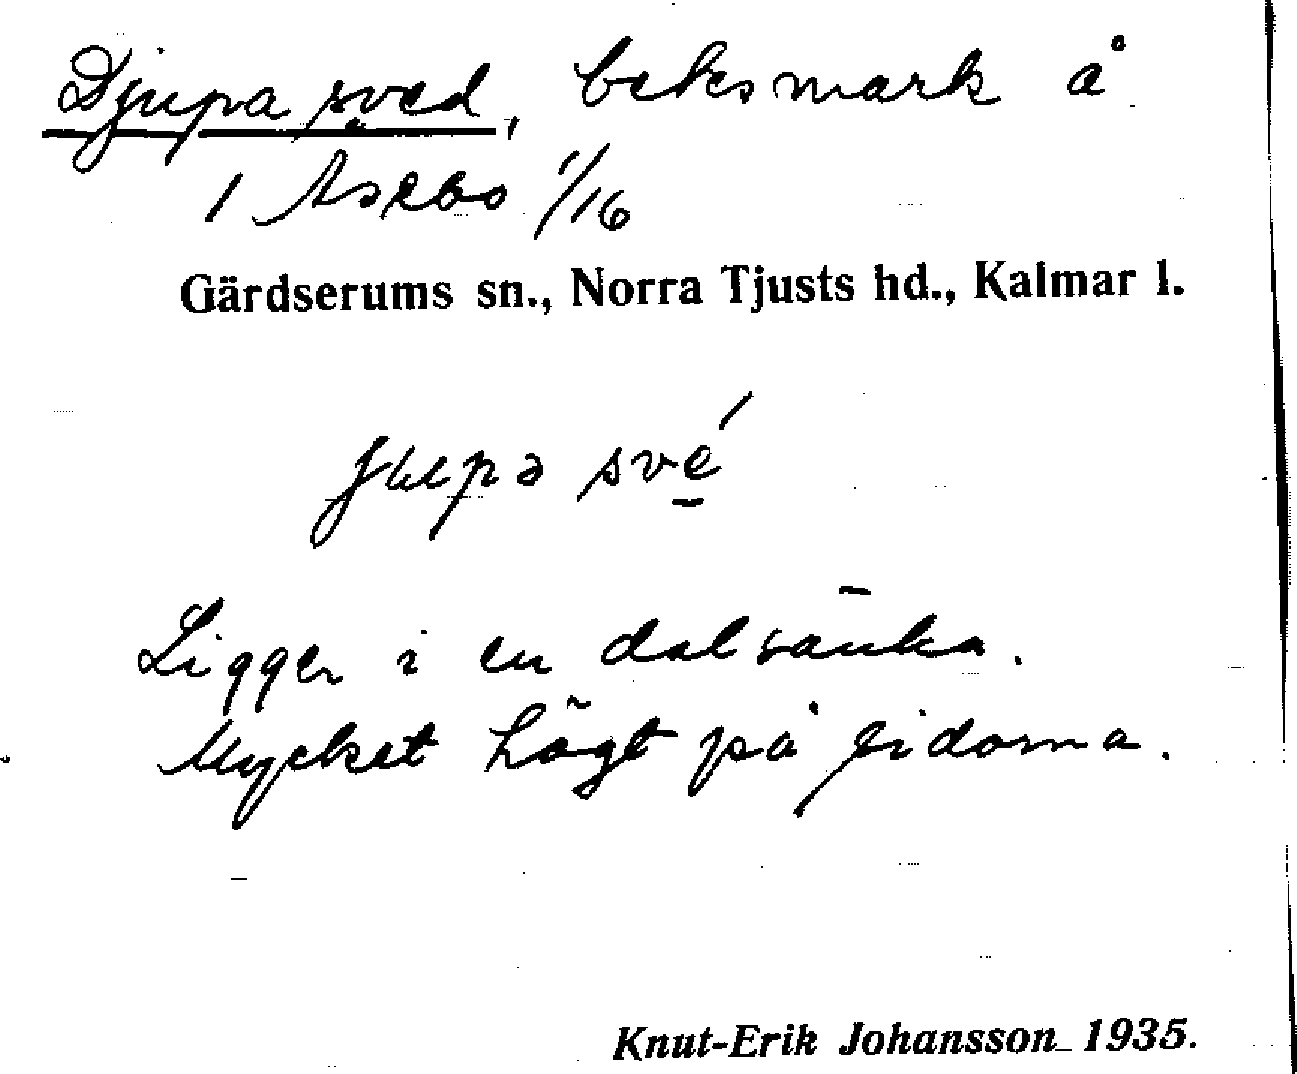 Djupa sved, beksmark å
1 Åsebo 1/16
Gärdserums sn., Norra Tjusts hd., Kalmar l.
jupa své
Ligger i en dalsänka.
Mycket högt på sidorna.
Knut-Erik Johansson 1935.